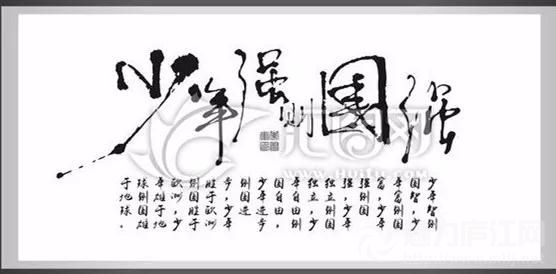 少年强则國强
少年智则
国智，少
年富则国
富，少年
强则国
强，少年
独立则国
独立，少
年自由则
国自由，
少年进步
则国进
步，少年
胜于欧洲
则国胜于
欧洲，少
年雄于地
球则国雄
于地球。
汇图网
魅力庐江网